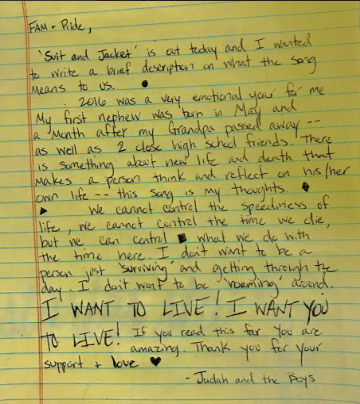 FAM + Pride,
'Suit and Jacket' is out today and I wanted
to write a brief description on what the song
means to us.
2016 was a very emotional year for me
My first nephew was born in May and
a month after my Grandpa passed away --
as well as 2 close high school friends. There
is something about new life and death that
makes a person think and reflect on his/her
own life -- this song is my thoughts.
We cannot control the speediness of
life, we cannot control the time we die,
but we can control what we do with
the time here. I don't want to be a
person just 'surviving' and getting through the
day. I don't want to be 'roaming' around.
I WANT TO LIVE! I WANT YOU
TO LIVE! If you read this far you are
amazing. Thank you for your
support + love ♥
- Judah and the Boys